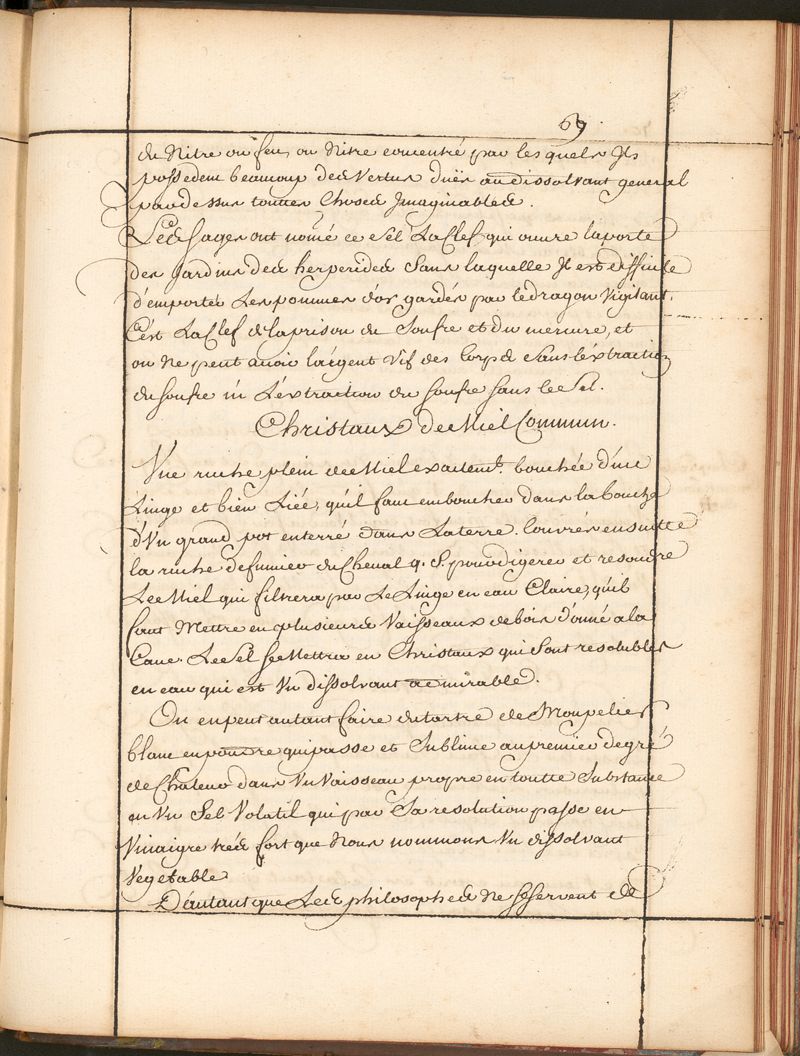 69
du Nitre ou feu, ou Nitre concentré par les quels Ils
possedent beaucoup des Vertus du dissolvant general
pardessus touttes Choses Jmaginables.
Les Sages ont nomé ce Sel La Clef qui ouvre la porte
des Jardins des hesperides Sans laquelle Il est difficile
d'emporter Les pommes d'or gardés par le dragon Vigilant.
C'est La Clef de la prison du Soufre et du mercure, et
on Ne peut avoir l'argent Vif des Corps Sans l'extraction
du soufre ni L'extraction du soufre sans le Sel.
Christaux de Miel Commun.
Vne ruche plein de Miel exactemt. bouchée d'un
Linge et bien Liée, qu'il faut emboucher dans la bouche
d'Vn grand pot enterré dans La terre. Couvrés ensuitte
la ruche de fumier de Cheval q. S. pour digerer et resoudre
Le Miel qui filtrera par Le Linge en eau Claire, qu'il
faut Mettre en plusieurs Vaisseaux de bois a la
Cave. Le Sel se Mettra en Christaux qui Sont resolubles
en eau qui est Vn dissolvant admirable.
On en peut autant faire du tartre de Monpelier
blanc en poudre qui passe et Sublime au premier degré
de Chaleur dans Vn Vaisseau propre en toutte Substance
en Vn Sel Volatil qui par Sa resolution passe en
Vinaigre tres fort que Nous nommons Vn dissolvant
Vegetable
D'autant que Les philosophes Ne se servent de